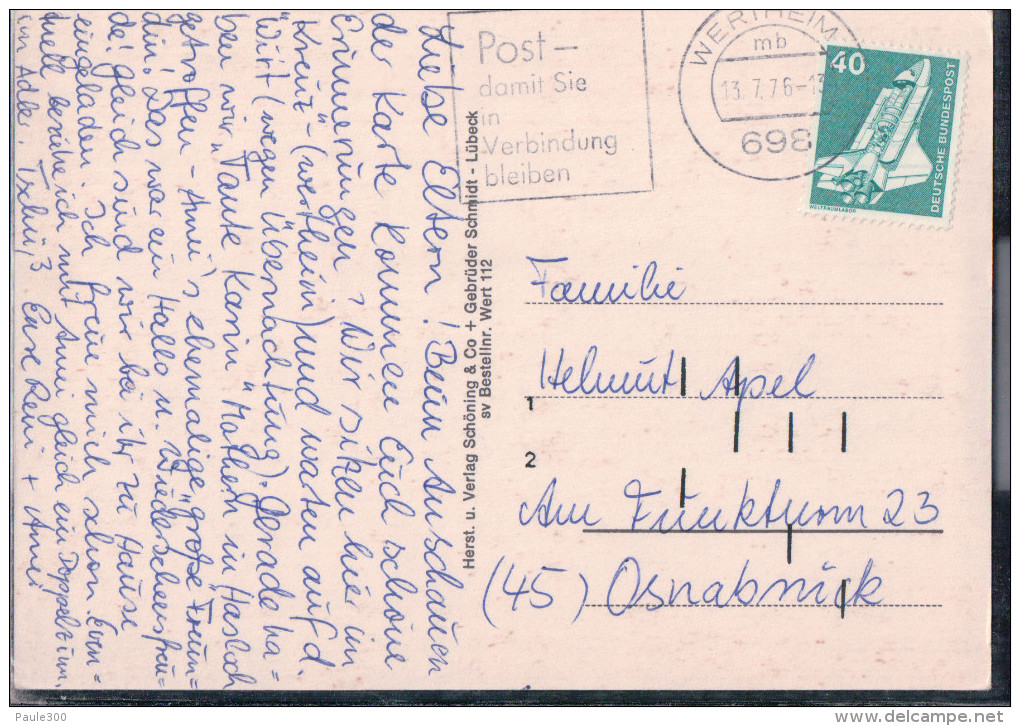 Liebe Eltern! Beim Anschauen
der Karte kommen Euch schöne
Erinnerungen? Wir sitzen hier im
"Kreuz" - (Wertheim) und warten auf d.
Wirt (wegen Übernachtung). Gerade ha-
ben wir "Tante Karin" Mathern in Hasloch
getroffen - Anni's ehemalige "große" Freun-
din! Das war ein Hallo u. Wiedersehensfreu-
de! Gleich sind wir bei ihr zu Hause
eingeladen. Ich freue mich schon. Even-
tuell bestelle ich mit Anni gleich ein Doppelzim.
im Adler. Tschüß Eure Reni + Anni
Herst. u. Verlag Schöning & Co + Gebrüder Schmidt - Lübeck
sv Bestellnr. Wert 112
Post -
damit Sie
in
Verbindung
bleiben
WERTHEIM
mb
13.7.76-13
698
40
DEUTSCHE BUNDESPOST
WELTRAUMLABOR
Familie
Helmut Apel
1
2
Am Funkturm 23
(45) Osnabrück
Paule300
www.delcampe.net